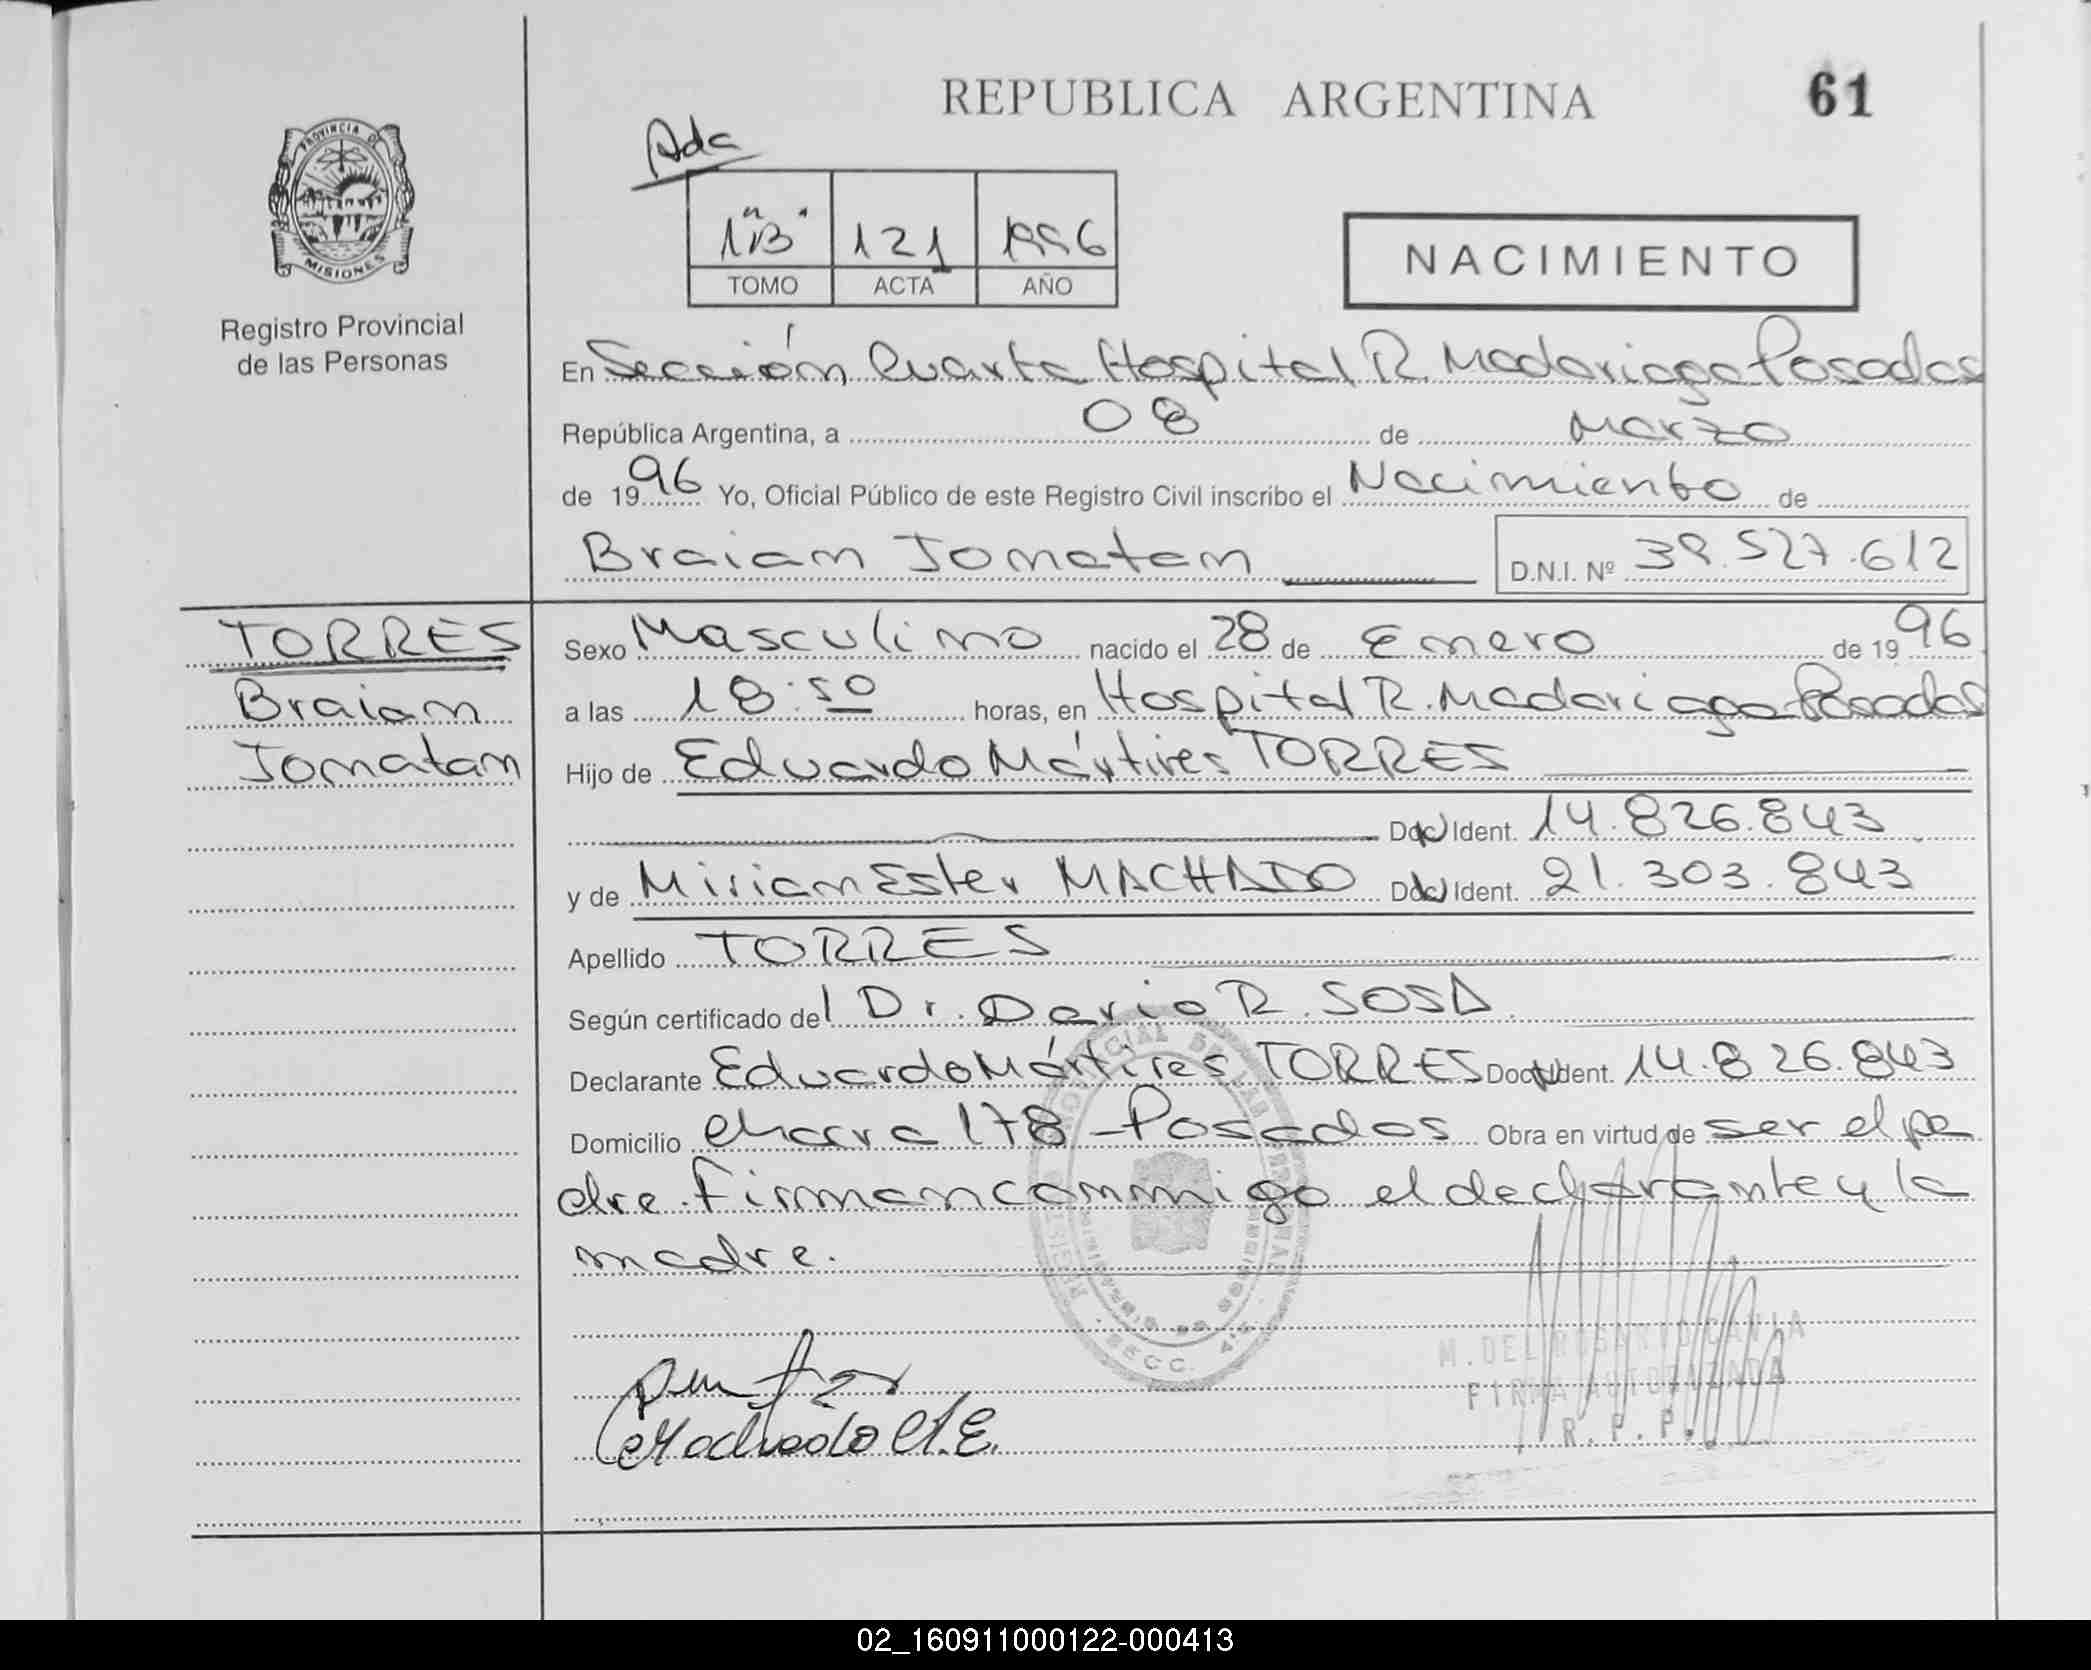 REPUBLICA ARGENTINA
61
Ada
PROVINCIA DE
MISIONES
Registro Provincial
de las Personas
1 "B" 121 1996
TOMO ACTA AÑO
NACIMIENTO
En Sección Cuarta Hospital R. Madariaga Posadas
República Argentina, a 08 de Marzo
de 1996 Yo, Oficial Público de este Registro Civil inscribo el Nacimiento de
Braian Jonatan D.N.I. Nº 39.527.612
TORRES
Braian
Jonatan
Sexo Masculino nacido el 28 de Enero de 1996
a las 18:50 horas, en Hospital R. Madariaga Posadas
Hijo de Eduardo Mártires TORRES
Doc. Ident. 14.826.843
y de Miriam Ester MACHADO Doc. Ident. 21.303.843
Apellido TORRES
Según certificado del Dr. Dario R. SOSA
Declarante Eduardo Mártires TORRES Doc. Ident. 14.826.843
Domicilio Chacra 178 - Posadas Obra en virtud de ser el pa
dre. Firman conmigo el declarante y la
madre.
SECC. 4ª
M. DEL ROSARIO
FIRMA AUTORIZADA
R. P. P.
Machado M. E.
02_160911000122-000413